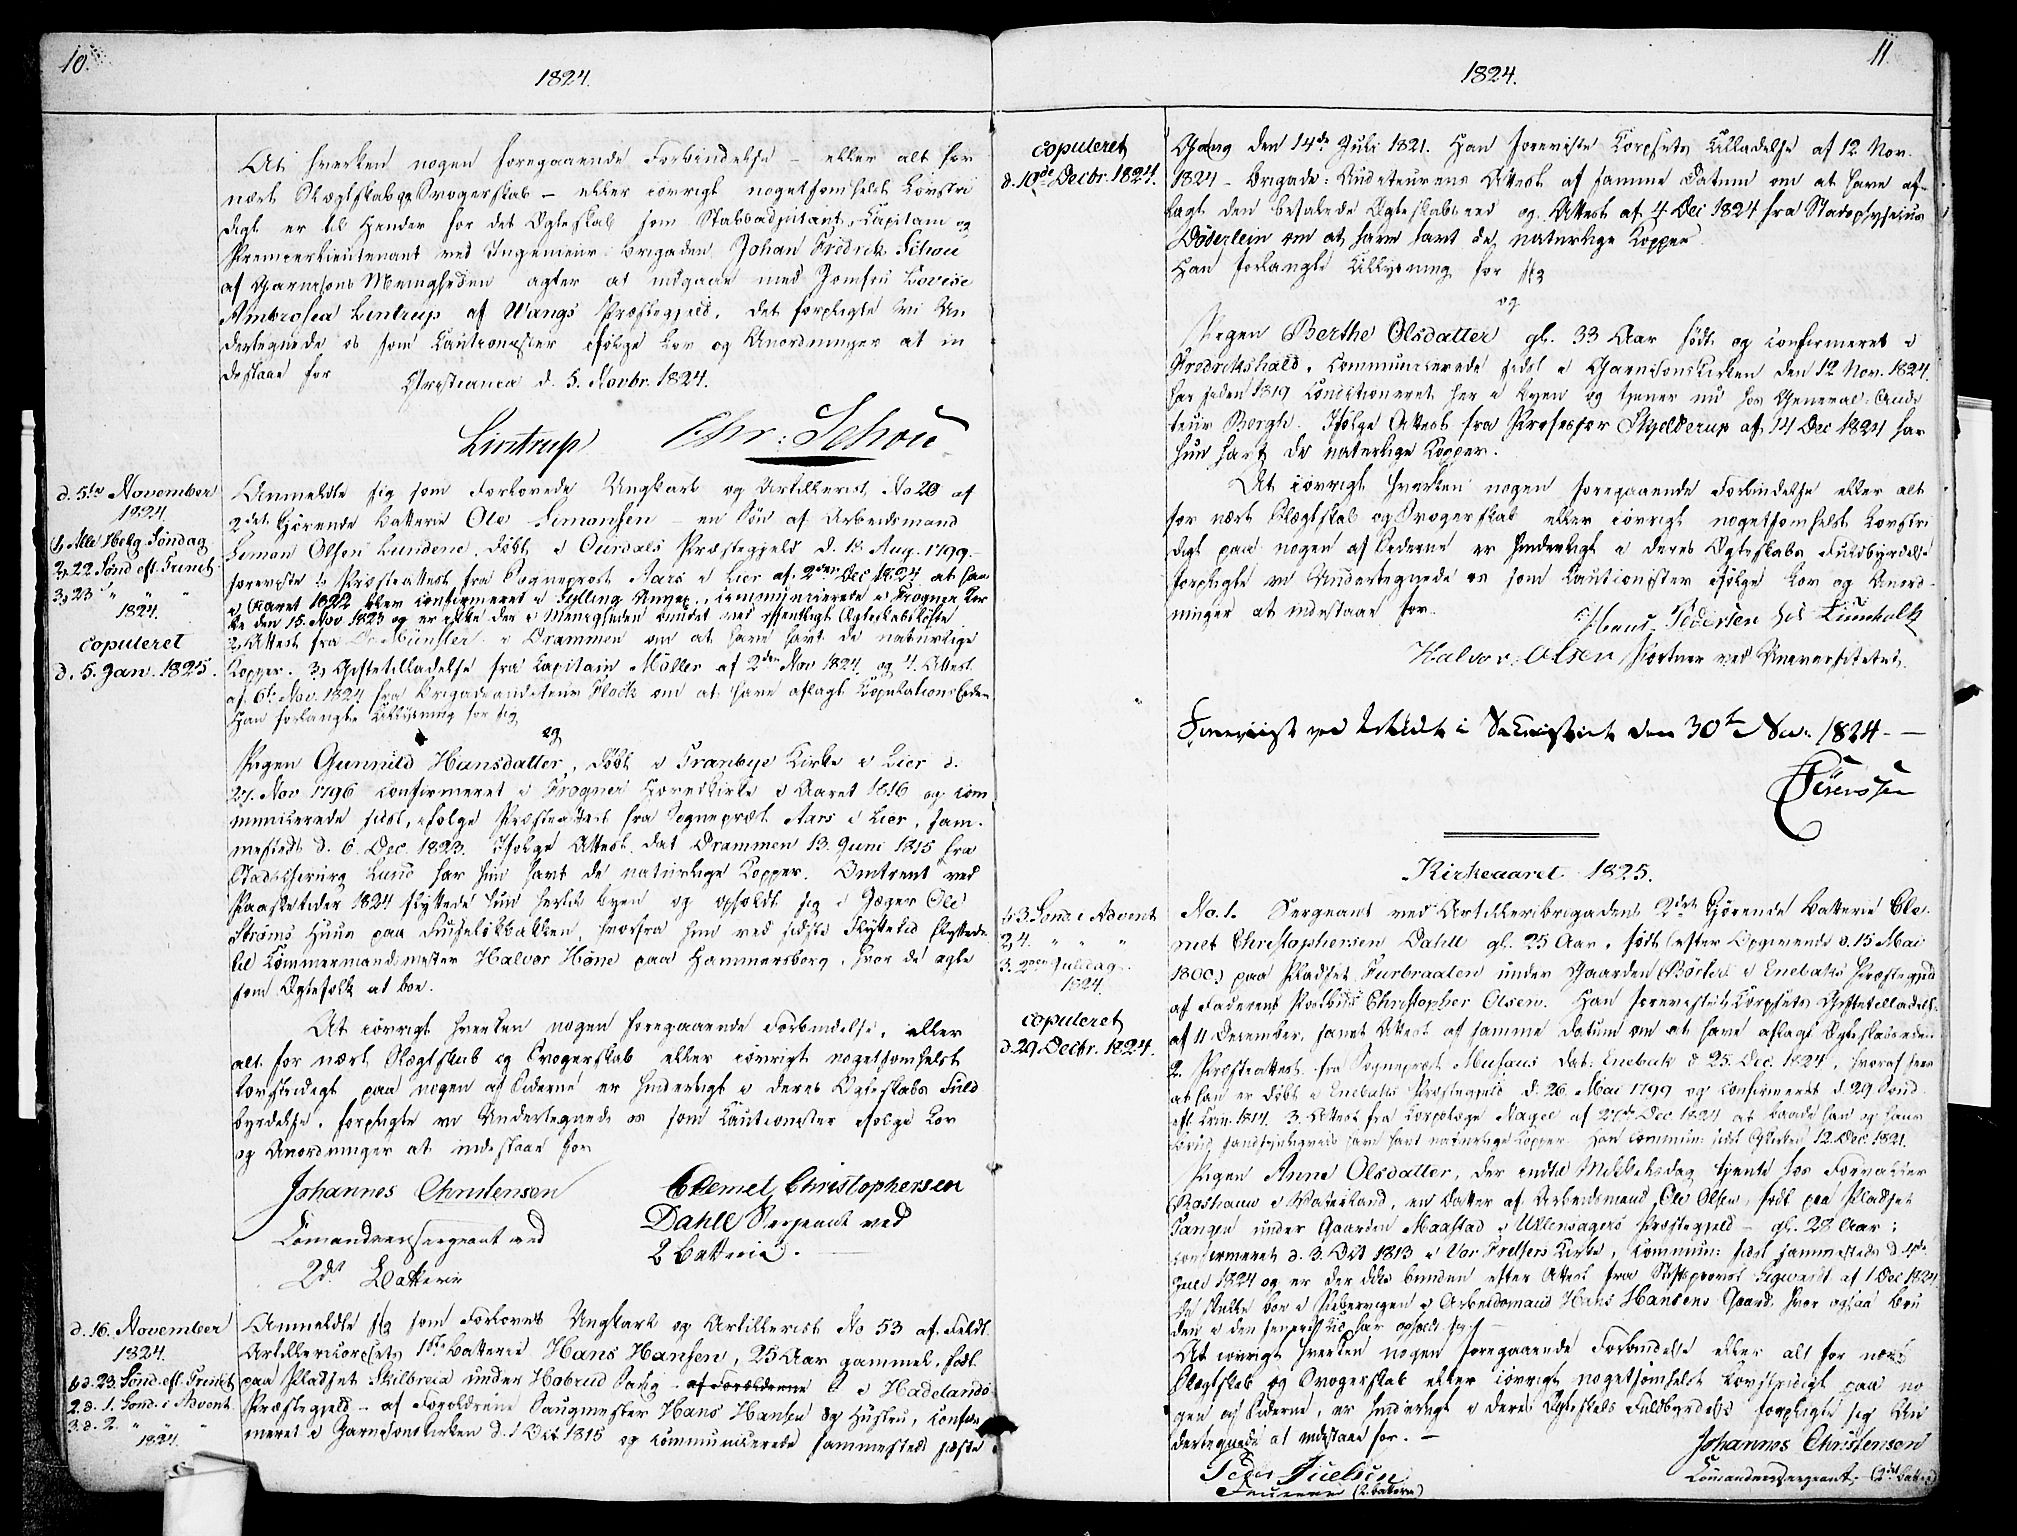 10.
1824.
At hverken nogen foregaaende Forbindelse – eller alt for
nært Slægtskab og Svogerskab – eller iøvrigt nogetsomhelst Lovstri
digt er til Hinder for det Ægteskab som Stabsadjutant, Kapitain og
Premierlieutenant ved Ingenieur brigaden Johan Fredrik Schou
af Garnisons Menigheden agter at indgaae med Jomfru Lovise
Ambrosea Lintrup af Wangs Præstegjeld, det forpligte Vi Un
dertegnede os som Cautionister ifølge Lov og Anordninger at in
destaae for
Christiania d. 5. Novbr. 1824.
Lintrup Chr: Schou
d. 5te November
1824
1, Alle Helg. Søndag
2, 22 Sønd. eft. Trinit.
3, 23 " " "
1824.
copuleret
d. 5. Jan. 1825.
Anmeldte sig som Forlovede Ungkarl og Artillerist No 20 af
2det kjørende Batterie Ole Simonsen – en Søn af Arbeidsmand
Simon Olsen Lundene, døbt i Ourdals Præstegjeld d. 18 Aug. 1799. –
foreviste 1, Præsteattest fra Sogneprest Aars i Lier af 2den Dec 1824 at han
i Aaret 1822 blev confirmeret i Sylling Annex, communicerede i Frogner Kir
ke den 15. Nov 1823 og er ikke der i Menigheden bundet ved offentligt Ægteskabsløfte
2, Attest fra Dr. Münster i Drammen om at have havt de naturlige
Kopper. 3, Giftetilladelse fra Capitain Møller af 2den Nov 1824 og 4. Attest
af 6te Nov. 1824 fra Brigadeauditeur Flock om at have aflagt Copulations Eeden
Han forlangte Tillysning for sig
og
Pigen Gunnild Hansdatter, døbt i Tranbye Kirke i Lier d.
27. Nov 1796 confirmeret i Frogner Hovedkirke i Aaret 1816 og com
municerede sidst, ifølge Præsteattest fra Sogneprest Aars i Lier, sam-
mesteds d. 6. Dec. 1823. Ifølge Attest, dat Drammen 13. Juni 1815 fra
Stadschirurg Lund har hun havt de naturlige Kopper. Omtrent ved
Paasketider 1824 flyttede hun hertil byen og opholdt sig i Jæger Ole
Strøms Huus paa Ruseløkbakken, hvorfra hun ved sidste Flyttetid flyttede
til Tømmermandsmester Halvor Høne paa Hammersborg, hvor de agte
som Ægtefolk at boe.
At iøvrigt hverken nogen foregaaende Forbindelse, eller
alt for nært Slægtskab og Svogerskab eller iøvrigt nogetsomhelst
Lovstridigt paa nogen af Siderne er hinderligt i deres Ægteskabs Fuld
byrdelse, forpligte vi Undertegnede os som Cautionister ifølge Lov
og Anordninger at indestaae for
Johannes Christensen
Comandeersergeant ved
2dt Batterie
Clemet Christophersen
Dahll Sergeant ved
2 Batterie.
d. 16. November
1824.
1, d. 23. Sønd. eft. Trinit.
2. d. 1. Sønd. i Advent
3. d. 2. " " "
1824.
Anmeldte sig som Forlovet Ungkarl og Artillerist No 53 af Feldt
Artillericorpsets 1ste Batterie Hans Hansen, 25 Aar gammel, født
paa Pladset Skilbreia under Habrud i Hadelands
Præstegjeld – af Forældrene Saugmester Hans Hansen og Hustru, confir
meret i Garnisonskirken d. 1 Oct 1815 og communicerede sammesteds sidste
11.
1824.
copuleret
d. 10de Decbr. 1824.
Gang den 14de Juli 1821. Han foreviste Corpsets Tilladelse af 12 Nov.
1824 – Brigade: Auditeurens Attest af samme Datum om at have af-
lagt den befalede Ægteskabseed og Attest af 4 Dec 1824 fra Stadsphysicus
Döderlein om at have havt de naturlige Kopper.
Han forlangte Tillysning for sig
og
Pigen Berthe Olsdatter gl. 33 Aar født og confirmeret i
Fredrikshald, communicerede sidst i Garnisonskirken den 12 Nov. 1824.
har siden 1819 conditioneret her i Byen og tjener nu hos General-Audi
teur Bergh. Ifølge Attest fra Professor Skjelderup af 14 Dec 1824 har
hun havt de naturlige Kopper.
At iøvrigt hverken nogen foregaaende Forbindelse eller alt
for nært Slægtskab og Svogerskab eller iøvrigt nogetsomhelst Lovstri
digt paa nogen af Siderne er hinderligt i deres Ægteskabs Fuldbyrdelse
forpligte vi Undertegnede os som Cautionister ifølge Lov og Anord-
ninger at indestaae for.
Hans Pedersen hos Lumholtz
Halvor Olsen Portner ved Universitetet.
Foreviist ved Visitats i Sacristiet den 30te Nov: 1824 –
Sørenssen
Kirkeaaret 1825.
1, 3 Sønd. i Advent
2, 4. " " "
3. 2den Juledag.
1824.
copuleret
d. 29. Decbr. 1824.
No. 1. Sergeant ved Artilleribrigadens 2det kjørende Batterie Cle-
met Christophersen Dahll gl. 25 Aar, født (efter Opgivende d. 15 Mai
1800) paa Pladset Furbraaten under Gaarden Børter i Enebaks Præstegjeld
af Faderen Christopher Olsen. Han foreviste 1, Corpsets Giftetilladelse
af 11 December, samt Attest af samme Datum om at have aflagt Ægteskabseeden
2. Præsteattest fra Sogneprest Musæus dat: Enebak d 25. Dec. 1824, hvoraf sees
at han er døbt i Enebaks Præstegjeld d. 26. Mai 1799 og confirmeret d. 29 Sønd.
eft. Trin. 1814. 3. Attest fra Corpslæge Mayer af 27de Dec 1824 at baade han og hans
Brud have havt naturlige Kopper. Han commun: sidst 12 Dec. 1821.
Pigen Anne Olsdatter, der indtil Mikkelsdag tjente hos Forvalter
i Vaterland, en Datter af Arbeidsmand Ole Olsen, født paa Pladset
Tangen under Gaarden Maastad i Ullensagers Præstegjeld – gl. 28 Aar;
confirmeret d. 3. Oct 1813 i Vor Frelsers Kirke, commun: sidst sammesteds d. 4de
Juli 1824 og er der ikke bunden efter Attest fra Stiftsprovst Sigwardt af 1 Dec 1824
De skulle boe i Pibervigen i Arbeidsmand Hans Hansens Gaard, hvor ogsaa Bru
den i den seneste Tid har opholdt sig. –
At iøvrigt hverken nogen foregaaende Forbindelse eller alt for nært
Slægtskab og Svogerskab eller iøvrigt nogetsomhelst Lovstridigt paa no
gen af Siderne, er hinderligt i deres Ægteskabs Fuldbyrdelse forpligte sig Un
dertegnede at indestaae for. –
Johannes Christensen
Comandeersergeant – (2det Batterie)
Peder Juelsen
(2. Batterie)